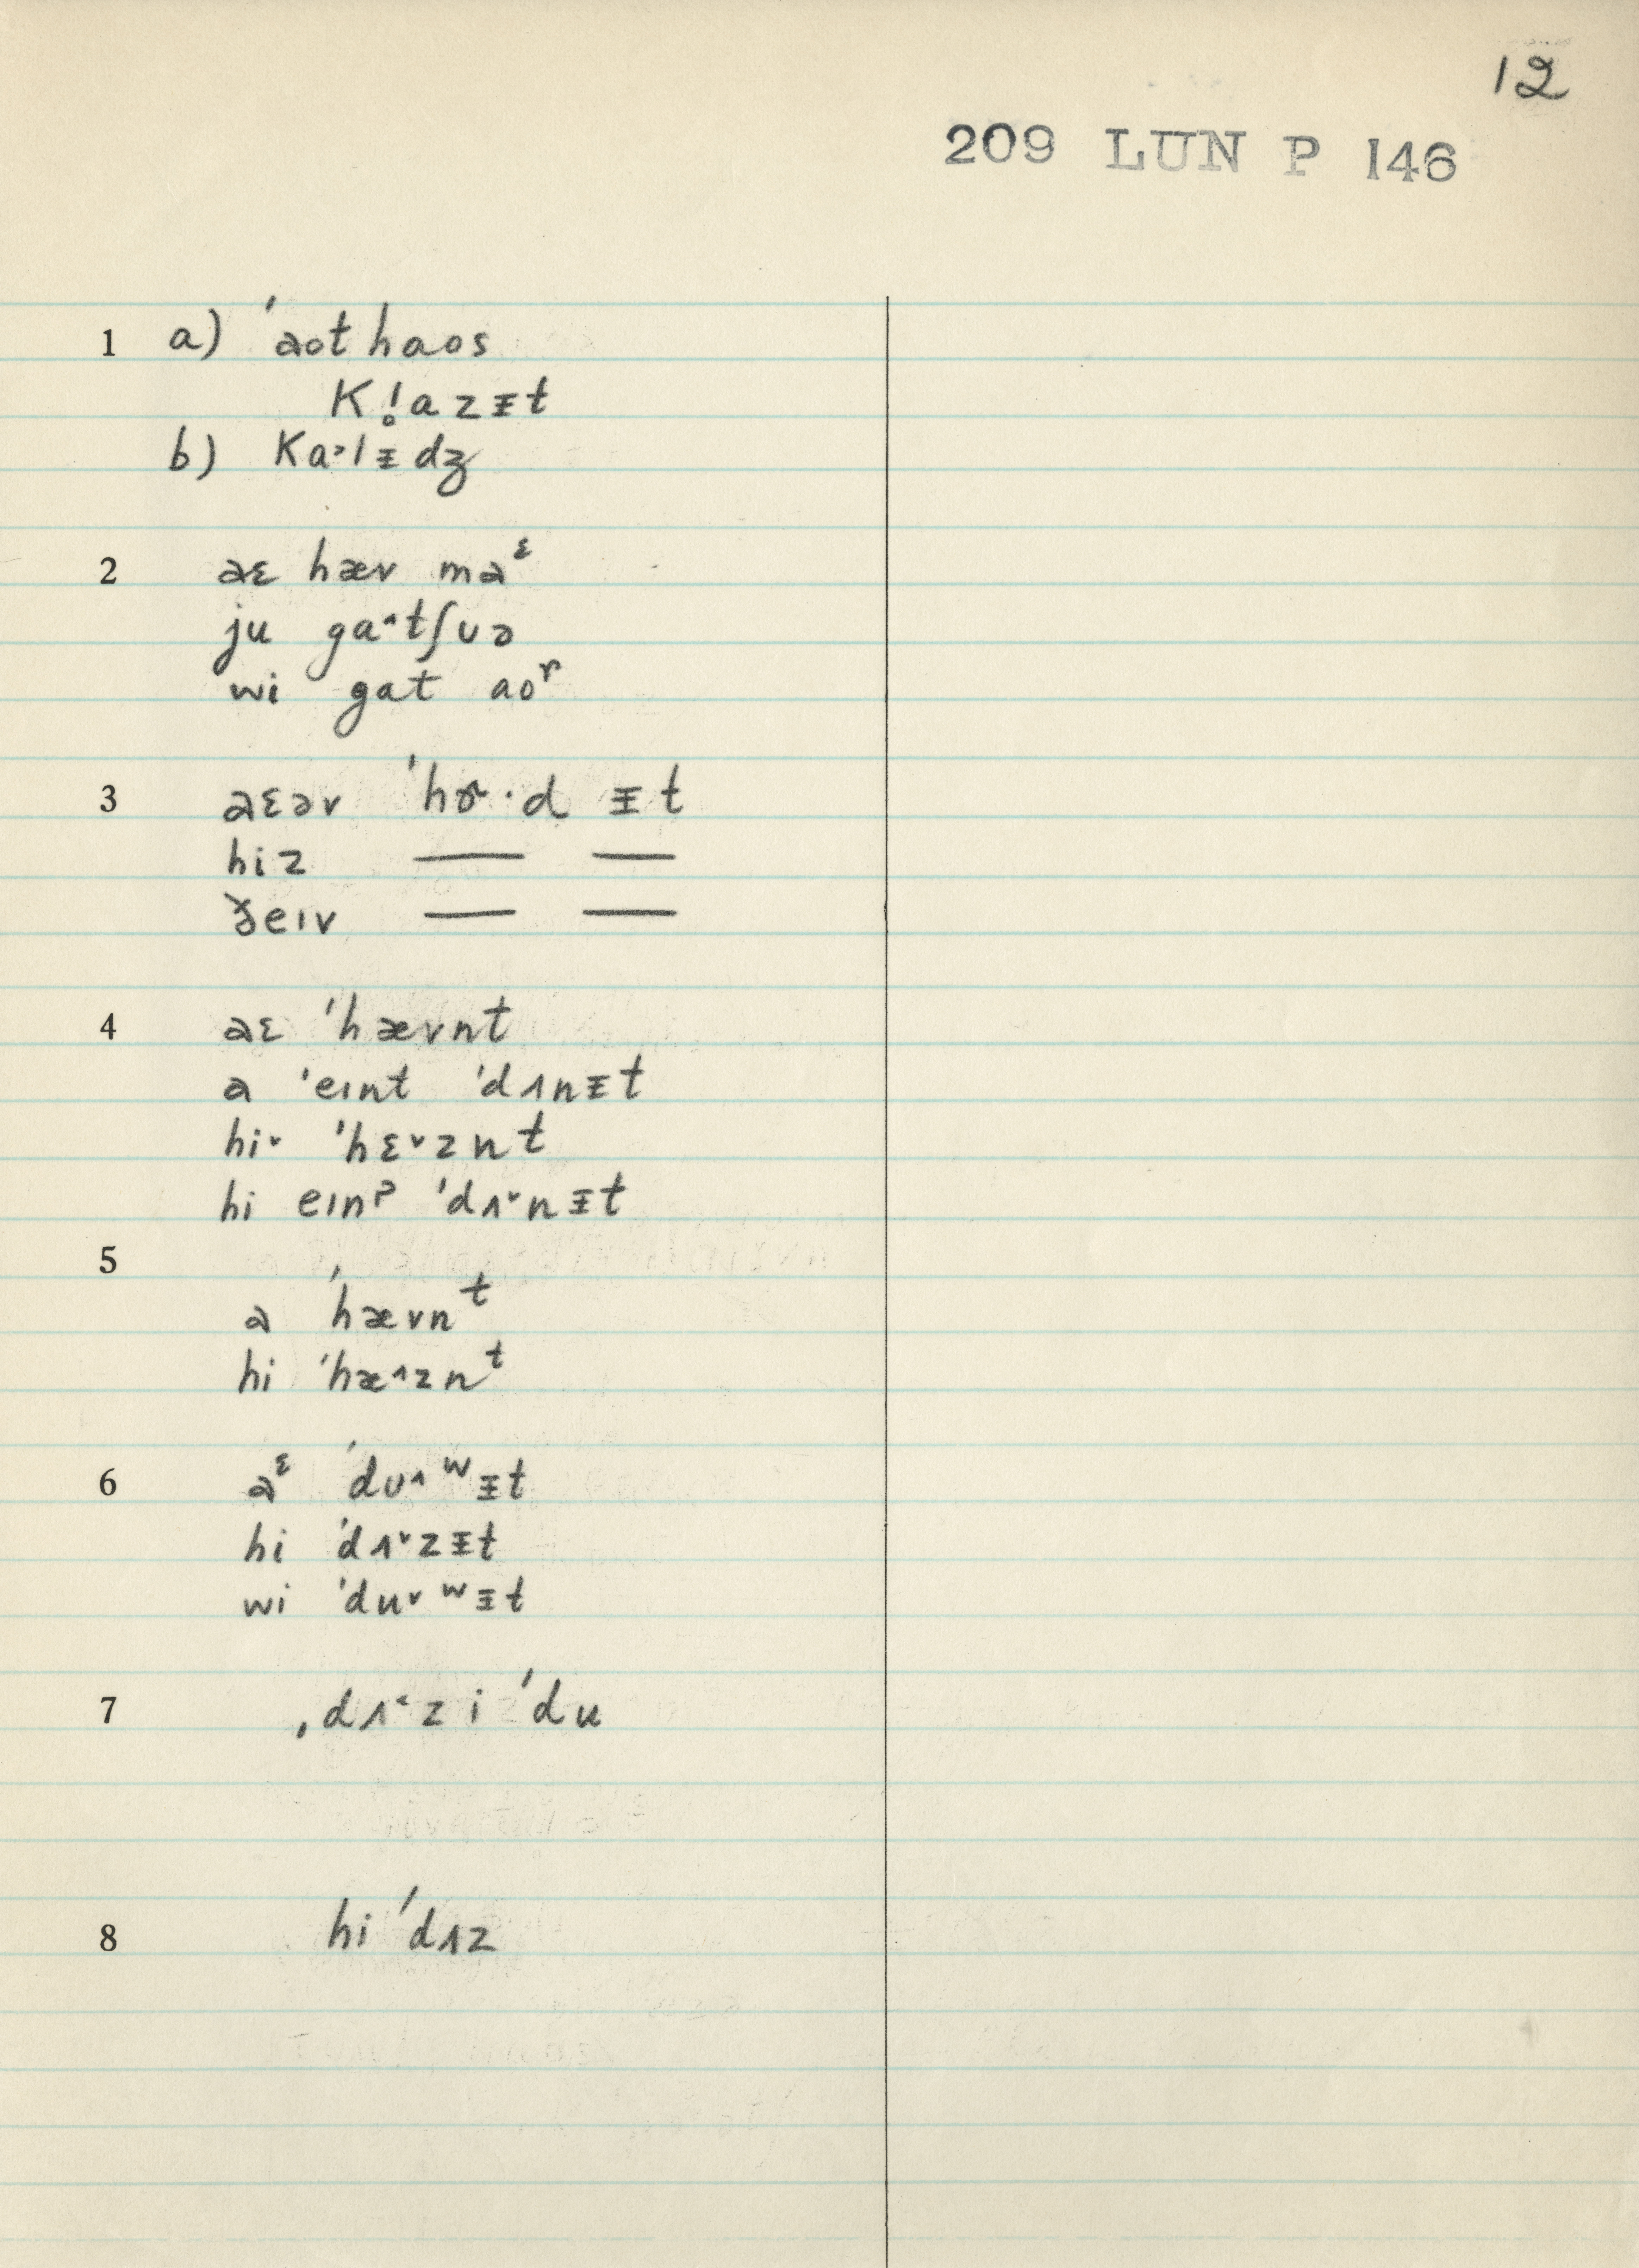 12
209 LUN P 146
1 a) ˈaot haos
Kl̥azᵻt
b) Ka˃lᵻdʒ
2 aɛ hæv maᵋ
ju ga˄tʃʊə
wi gat aoʳ
3 aɛəv ˈhɚ·d ᵻt
hiz — —
ðeɪv — —
4 aɛ ˈhævnt
a ˈeɪnt ˈdʌnᵻt
hi˅ ˈhɛ˅znt
hi eɪnʔ ˈdʌ˅nᵻt
5
a ˈhævnᵗ
hi ˈhæ˄znᵗ
6 aᵋ ˈdʊ˄ʷᵻt
hi ˈdʌ˅zᵻt
wi ˈdu˅ʷᵻt
7 ˌdʌ˂zi ˈdu
8 hi ˈdʌz